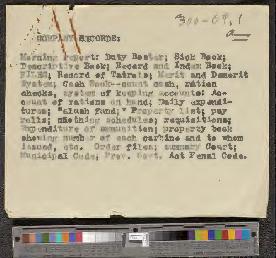 300-69.1
COMPANY RECORDS:
Morning Report; Duty Roster; Sick Book;
Descriptive Book; Record and Index Book;
FILES; Record of Trials; Merit and Demerit
System; Cash Book--count cash, ration
checks, system of keeping accounts; Ac-
count of rations on hand; Daily expendi-
tures; "slush fund;" Property list; pay
rolls; clothing schedules; requisitions;
Expenditure of ammunition; property book
showing number of each carbine and to whom
issued, etc. Order files; summary Court;
Municipal Code; Prov. Govt. Act Penal Code.